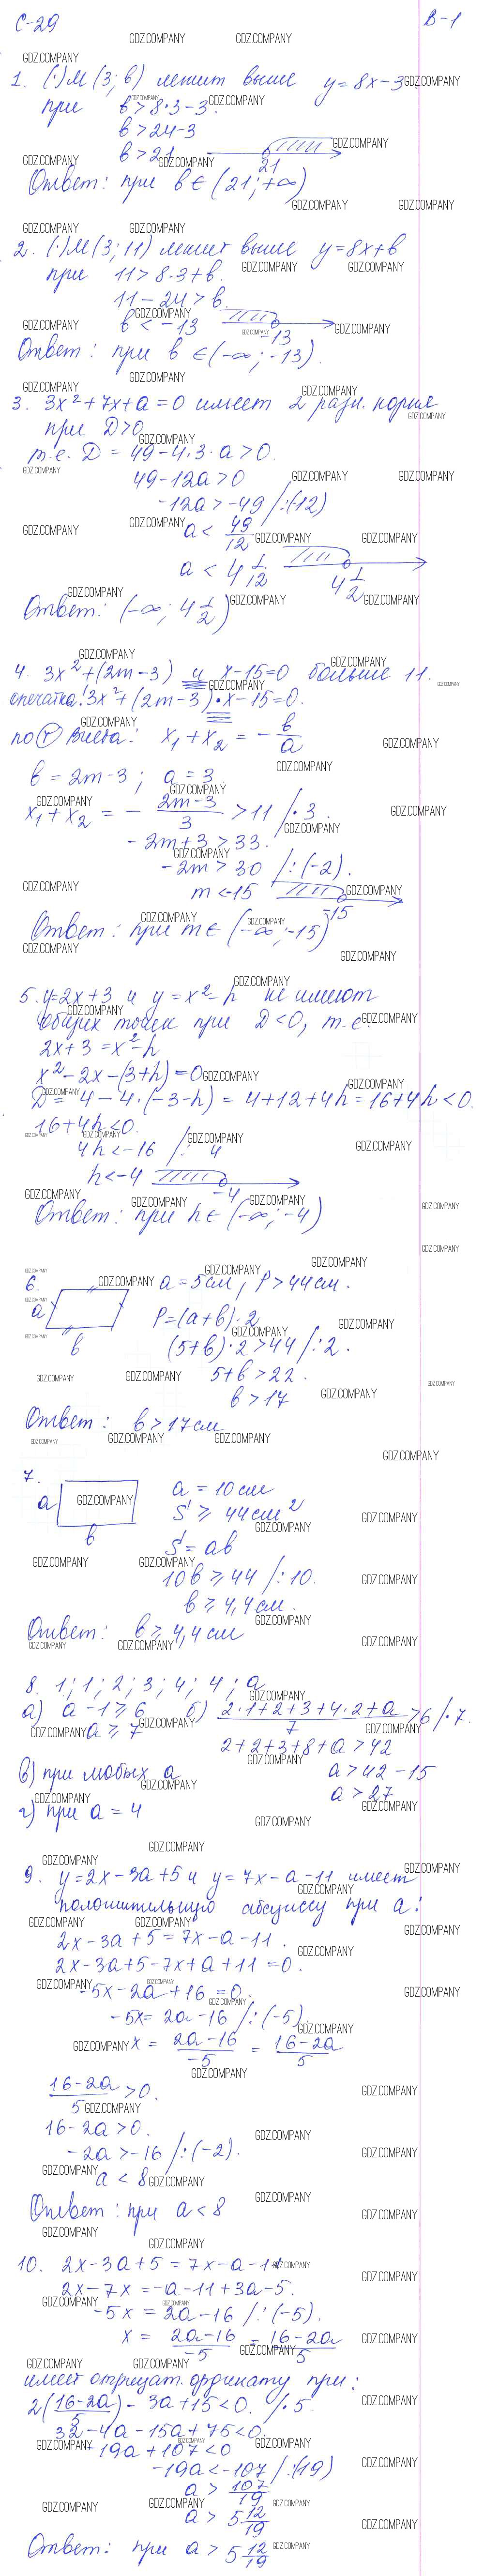 С-29 В-1
1. (·)М(3; b) лежит выше y=8x-3
при b>8·3-3.
b>24-3
b>21
21
Ответ: при b∈(21;+∞)
2. (·)М(3; 11) лежит выше y=8x+b
при 11>8·3+b.
11-24>b.
b<-13
-13
Ответ: при b∈(-∞; -13).
3. 3x²+7x+a=0 имеет 2 разл. корня
при D>0
т.е. D=49-4·3·a>0.
49-12a>0
-12a>-49 /:(12)
a< 49/12
a<4 1/12
4 1/2
Ответ: (-∞; 4 1/2)
4. 3x²+(2m-3) и x-15=0 больше 11.
опечатка! 3x²+(2m-3)·x-15=0.
по (т) Виета: x₁+x₂ = - b/a
b=2m-3; a=3
x₁+x₂ = - (2m-3)/3 >11 /·3.
-2m+3>33.
-2m>30 /:(-2).
m<-15
-15
Ответ: при m∈(-∞;-15)
5. y=2x+3 и y=x²-h не имеют
общих точек при D<0, т.е.
2x+3=x²-h
x²-2x-(3+h)=0
D=4-4·(-3-h)=4+12+4h=16+4h<0.
16+4h<0.
4h<-16 /: 4
h<-4
-4
Ответ: при h∈(-∞;-4)
6. a=5см, P>44см.
a
b
P=(a+b)·2
(5+b)·2>44 /:2.
5+b>22.
b>17
Ответ: b>17см
7.
a
b
a=10см
S≥44см²
S=ab
10b≥44 /:10.
b≥4,4см.
Ответ: b≥4,4см
8. 1; 1; 2; 3; 4; 4; a
а) a-1≥6 б) (2·1+2+3+4·2+a)/7 >6 /·7.
a≥7
2+2+3+8+a>42
в) при любых a a>42-15
a>27
г) при a=4
9. y=2x-3a+5 и y=7x-a-11 имеет
положительную абсциссу при a:
2x-3a+5=7x-a-11.
2x-3a+5-7x+a+11=0.
-5x-2a+16=0.
-5x=2a-16 /:(-5).
x= (2a-16)/-5 = (16-2a)/5
(16-2a)/5 >0.
16-2a>0.
-2a>-16 /:(-2).
a<8
Ответ: при a<8
10. 2x-3a+5=7x-a-11
2x-7x=-a-11+3a-5.
-5x=2a-16 /:(-5).
x= (2a-16)/-5 = (16-2a)/5
имеет отрицат. ординату при:
2((16-2a)/5)-3a+15<0. /·5.
32-4a-15a+75<0.
-19a+107<0
-19a<-107 /:(19)
a> 107/19
a>5 12/19
Ответ: при a>5 12/19
GDZ.COMPANY